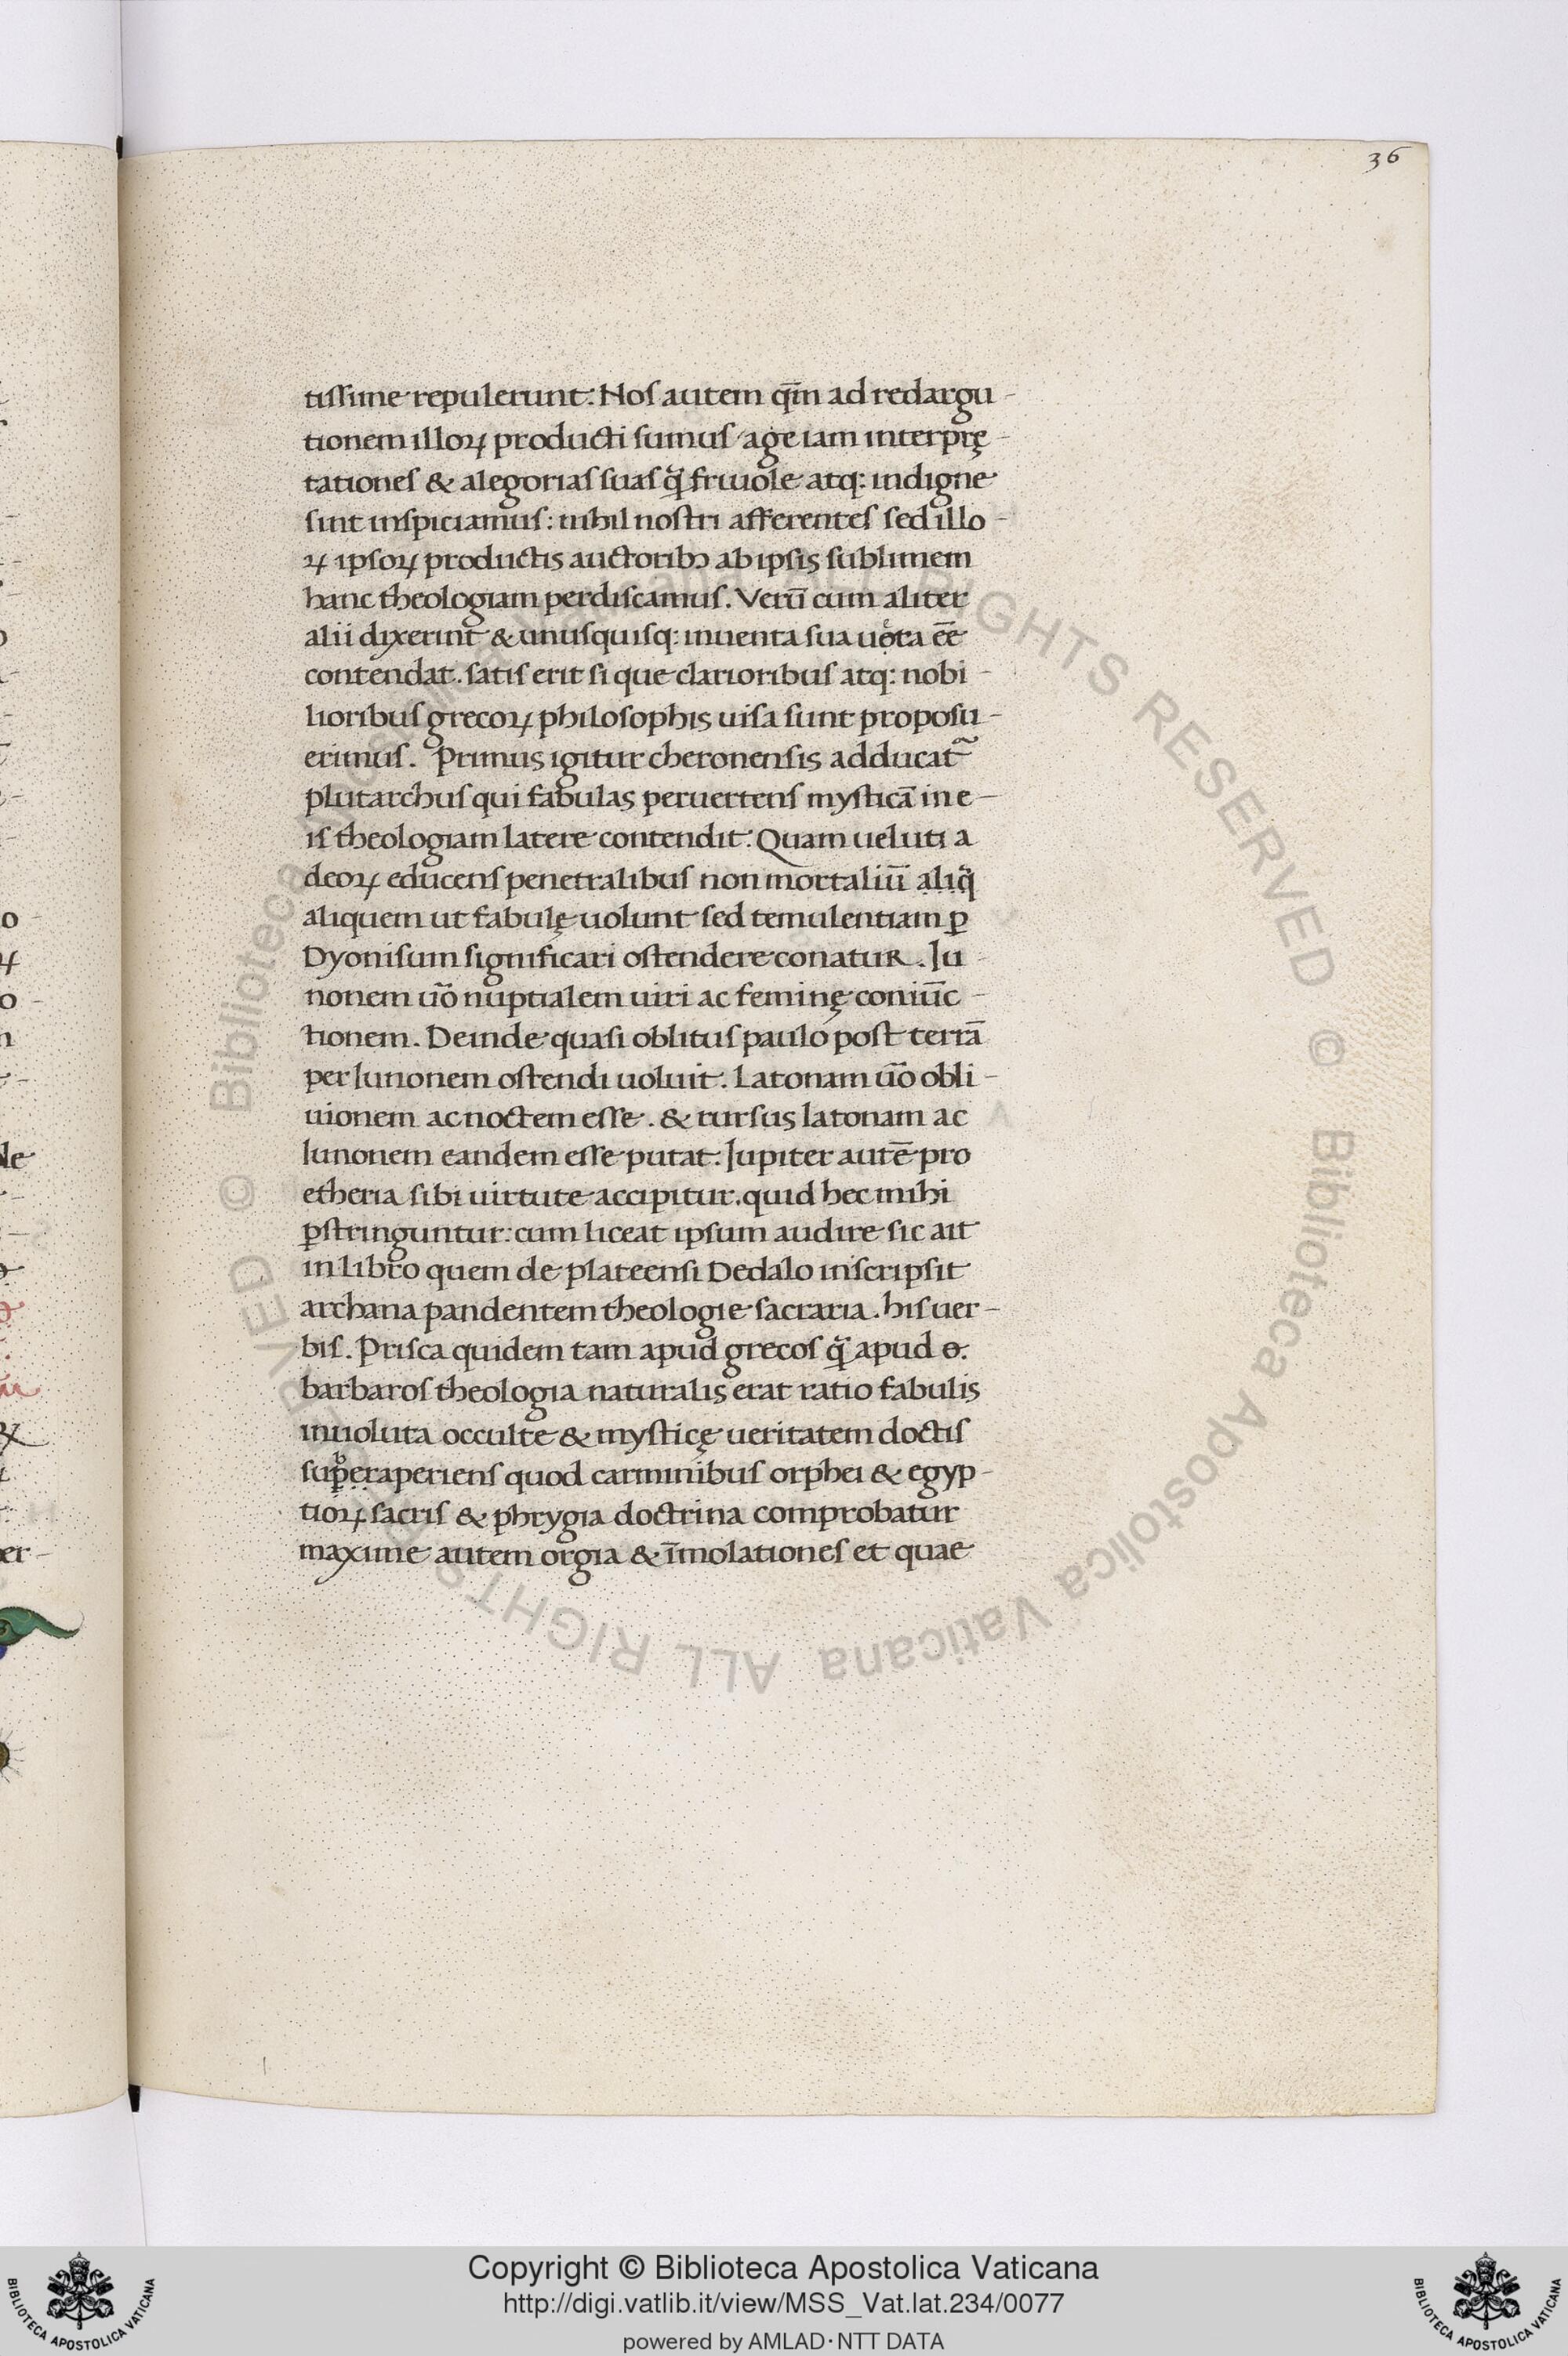 36
tissime repulerunt. Nos autem qm̄ ad redargu-
tionem illoꝝ producti sumus age iam interprę-
tationes & alegorias suas q̃ friuole atq: indigne
sint inspiciamus: nihil nostri afferentes sed illo-
ꝝ ipsoꝝ productis auctoribꝫ ab ipsis sublimem
hanc theologiam perdiscamus. Verū cum aliter
alii dixerint & unusquisq: inuenta sua uera eē
contendat. satis erit si que clarioribus atq: nobi-
lioribus grecoꝝ philosophis uisa sunt proposu-
erimus. Primus igitur cheronensis adducat~
plutarchus qui fabulas peruertens mysticā in e-
is theologiam latere contendit. Quam ueluti a
deoꝝ educens penetralibus non mortaliū aliq̃
aliquem ut fabulę uolunt sed temulentiam ꝑ
Dyonisum significari ostendere conatur. Iu-
nonem uō nuptialem uiri ac feminę coniūc-
tionem. Deinde quasi oblitus paulo post terrā
per Iunonem ostendi uoluit. Latonam uō obli-
uionem ac noctem esse. & rursus latonam ac
Iunonem eandem esse putat. Iupiter autē pro
etheria sibi uirtute accipitur. quid hec mihi
ꝑstringuntur: cum liceat ipsum audire sic ait
in libro quem de plateensi Dedalo inscripsit
archana pandentem theologie sacraria. his uer-
bis. Prisca quidem tam apud grecos q̃ apud ɵ.
barbaros theologia naturalis erat ratio fabulis
inuoluta occulte & mysticę ueritatem doctis
superaperiens quod carminibus orphei & egyp-
tioꝝ sacris & phrygia doctrina comprobatur
maxime autem orgia & īmolationes et quae
© Biblioteca Apostolica Vaticana ALL RIGHTS RESERVED © Biblioteca Apostolica Vaticana ALL RIGHTS RESERVED
Copyright © Biblioteca Apostolica Vaticana
http://digi.vatlib.it/view/MSS_Vat.lat.234/0077
powered by AMLAD·NTT DATA
BIBLIOTECA APOSTOLICA VATICANA
BIBLIOTECA APOSTOLICA VATICANA